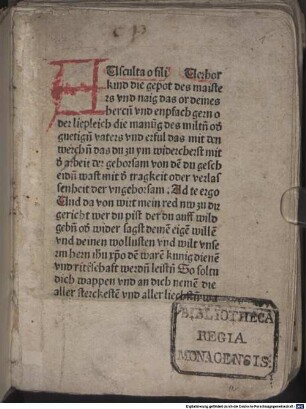 Ausculta o fili Erhor
kind die gepot des maiste
rs vnd naig das or deines
herczñ vnd enpfach gern o
der liepleich die manūg des miltñ oď
guetigñ vaters vnd erful das mit den
werchñ das du zu ym widercherst mit
ď arbeit der gehorsam von dē du gesch
eidñ wast mit ď tragkeit oder verlas
senheit der vngehorsam; Ad te ergo
Und da von wirt mein red nw zu du
gericht wer du pist der du auff wild
gebñ oď wider sagst deinē eigē willē
vnd deinen wollusten vnd wilt vnse
rm hern ihu xp̄o dē warē kunig dienē
vnd ritēschaft werdñ leistñ So soltu
dich wappen vnd an dich nemē die
aller sterckestē vnd aller liechstñ
BIBLIOTHECA
REGIA
MONACENSIS.